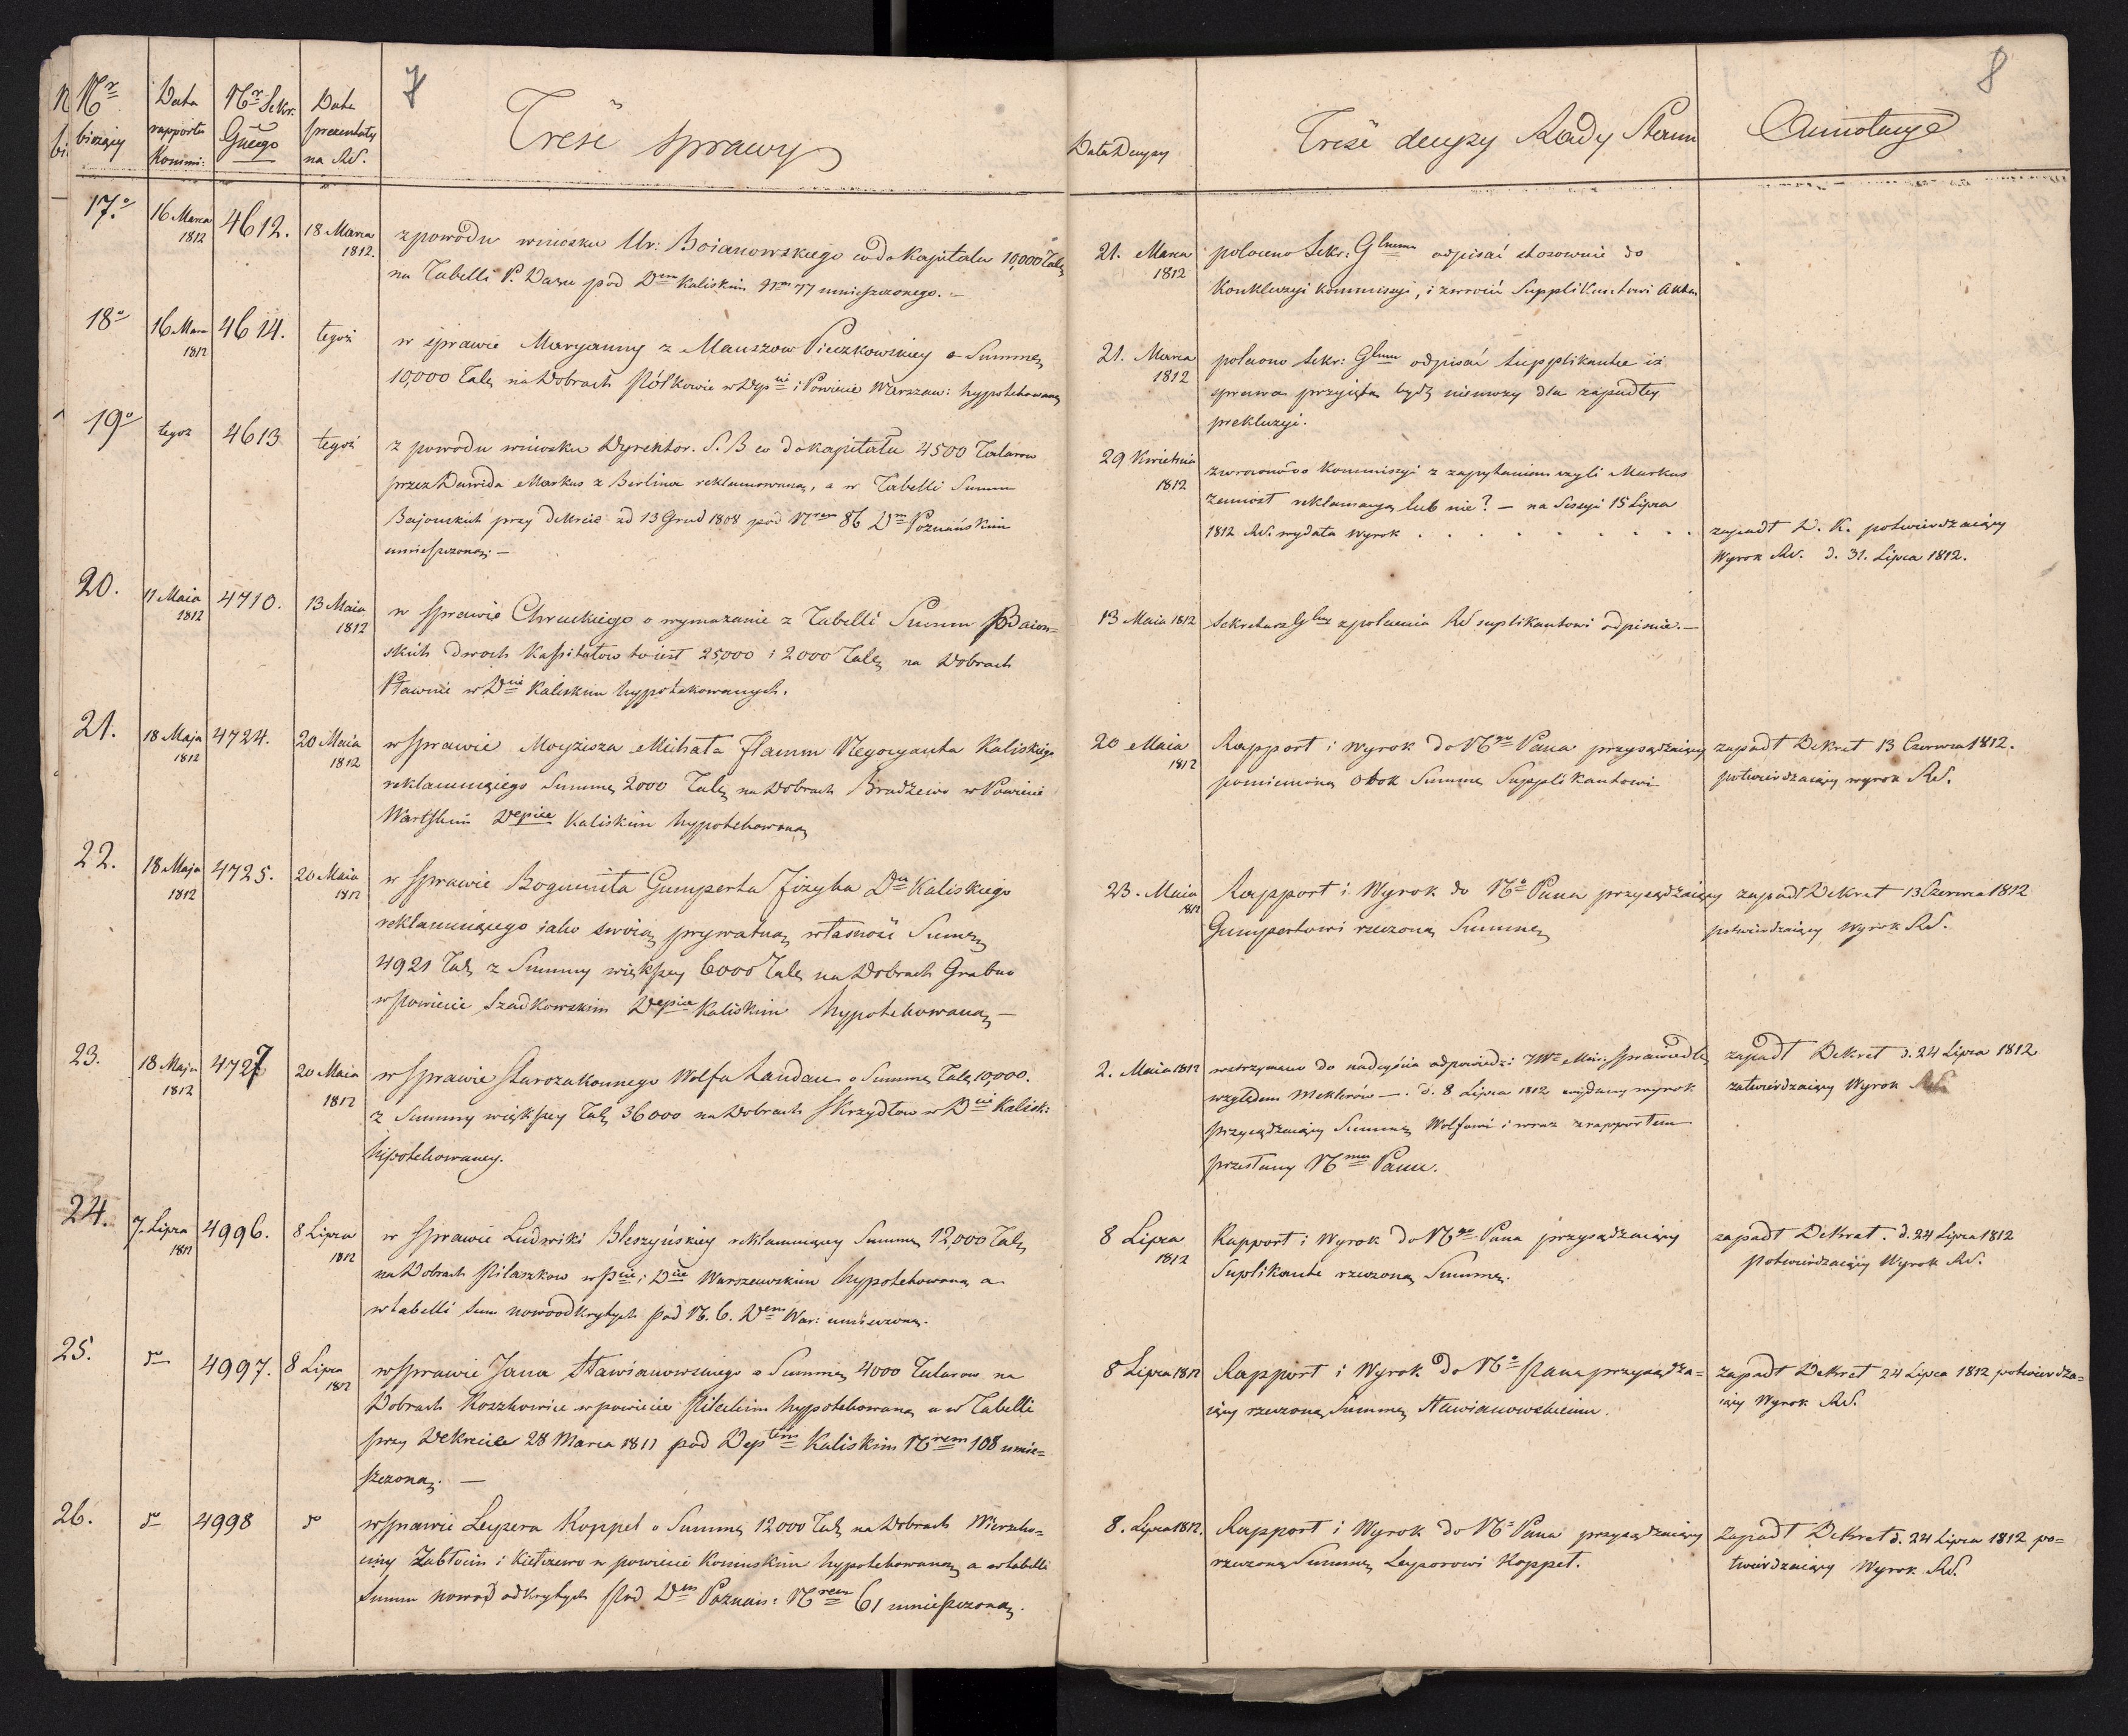 7
8
Nr bieżący
Data rapportu Kommi:
Nr Sekr. Gnego
Data prezentaty na RS.
Treść sprawy
Data Decyzyi
Treść decyzyi Rady Stanu
Annotacye
17.o
16 Marca 1812
4612.
18 Marca 1812.
z powodu wniosku Ur: Boianowskiego co do kapitału 10,000 Tal.
na Tabelli P. Daru pod Dem Kaliskim Nrm 77 umieszczonego. —
21. Marca 1812
polecono Sekr: Glnemu odpisać stosownie do
Konkluzyi Kommissyi, i zwrócić Supplikantowi Akta
18o
16 Marca 1812
4614.
tegoż
w sprawie Maryanny z Mauszow Pieczkowskiey o Summę
10,000 Tal. na Dobrach Pólkowie w Depcie i Powiecie Warszaw: hypotekowaną
21. Marca 1812
polecono Sekr: Glnmu odpisać Supplikantce iż
sprawa przyięta bydź niemoży dla zapadłey
prekluzyi.
19o
tegoż
4613
tegoż
z powodu wniosku Dyrektor. S. B co do kapitału 4500 Talarow
przez Dawida Markus z Berlina reklamowaną, a w Tabelli Summ
Bajońskich przy dekrecie ad 13 Grud 1808 pod Nrem 86 Dm Poznańskim
umieszczoną. —
29 Kwietnia 1812
zwrócono Kommissyi z zapytaniem czyli Markus
zaniósł reklamacyą lub nie? — na Sessyi 15 Lipca
1812 RS. wydała wyrok . . . . . . . . . .
zapadł D. K. potwierdzaiący
Wyrok RS. d. 31. Lipca 1812.
20.
11 Maia 1812
4710.
13 Maia 1812
w Sprawie Chruckiego o wymazanie z Tabelli Summ Baion-
skich dwoch Kapitałow to iest 25,000 i 2000 Tal. na Dobrach
Pławnie w Dcie Kaliskim hypotekowanych.
13 Maia 1812
Sekretarz Glny z polecenia RS suplikantowi odpisuie. —
21.
18 Maja 1812
4724.
20 Maia 1812
w Sprawie Moyżisza Michała Flamm Negocyanta Kaliskiego
reklamuiącego Summę 2000 Tal. na Dobrach Brudzewo w Powiecie
Wartskim Depcie Kaliskim hypotekowaną
20 Maia 1812
Rapport i wyrok do Ngo Pana przysądzaiący
pomienioną obok Summę Supplikantowi
zapadł Dekret 13 Czerwca 1812.
potwierdzaiący wyrok RS.
22.
18 Maja 1812
4725.
20 Maia 1812
w Sprawie Bogumiła Gumperta Fizyka Du Kaliskiego
reklamuiącego iako swoią prywatną własność Summę
4921 Tal. z Summy większey 6000 Tal. na Dobrach Grabno
w Powiecie Szadkowskim Depcie Kaliskim hypotekowaną —
23. Maia 1812
Rapport i Wyrok do No Pana przysądzaiący
Gumpertowi rzeczoną Summę
zapadł Dekret 13 Czerwca 1812
potwierdzaiący Wyrok RS.
23.
18 Maja 1812
4727
20 Maia 1812
w Sprawie Starozakonnego Wolfa Landau o Summę Tal. 10,000.
z Summy większey Tal. 36000 na Dobrach Skrzydłow w Dcie Kalisk:
hipotekowaney.
2. Maia 1812
wstrzymano do nadeyścia odpowiedzi JW Min: Sprawiedl.
względem Meklerów —. d. 8 Lipca 1812 wydany wyrok
przysądzaiący Summę Wolfowi i wraz z rapportem
przesłany Nmu Panu.
zapadł Dekret d. 24 Lipca 1812
zatwierdzaiący Wyrok RS.
24.
7. Lipca 1812
4996.
8 Lipca 1812
w Sprawie Ludwiki Bleszyńskiey reklamuiącey Summę 12,000 Tal.
na Dobrach Pilaszkow w Pcie i Dcie Warszawskim hypotekowaną a
w tabelli Sum nowoodkrytych pod N. 6. Dem War: umieszczoną.
8 Lipca 1812
Rapport i Wyrok do Ngo Pana przysądzaiący
Suplikantce rzeczoną Summę.
zapadł Dekret. d. 24 Lipca 1812
potwierdzaiący Wyrok RS.
25.
do
4997.
8 Lipca 1812
w Sprawie Jana Stawianowskiego o Summę 4000 Talarow na
Dobrach Koszkowice w powiecie Pileckim hypotekowaną a w Tabelli
przy Dekrecie 28 Marca 1811 pod Deptem Kaliskim Nrem 108 umie=
szczoną. —
8 Lipca 1812
Rapport i Wyrok do No Pana przysądza=
iący rzeczoną Summę Stawianowskiemu.
zapadł Dekret 24 Lipca 1812 potwierdza=
iący Wyrok RS.
26.
do
4998
do
w Sprawie Leyzera Koppel o Summę 12000 Tal. na Dobrach Wierzcho=
ciny Zabłocin i Kiełczewo w powiecie Konińskim hypotekowaną a w tabelli
Summ nowo odkrytych pod Dem Poznań: Nrem 61 umieszczoną.
8. Lipca 1812.
Rapport i Wyrok do No Pana przysądzaiący
rzeczoną Summę Leyzorowi Koppel.
Zapadł Dekret d. 24 Lipca 1812 po=
twierdzaiący Wyrok RS.